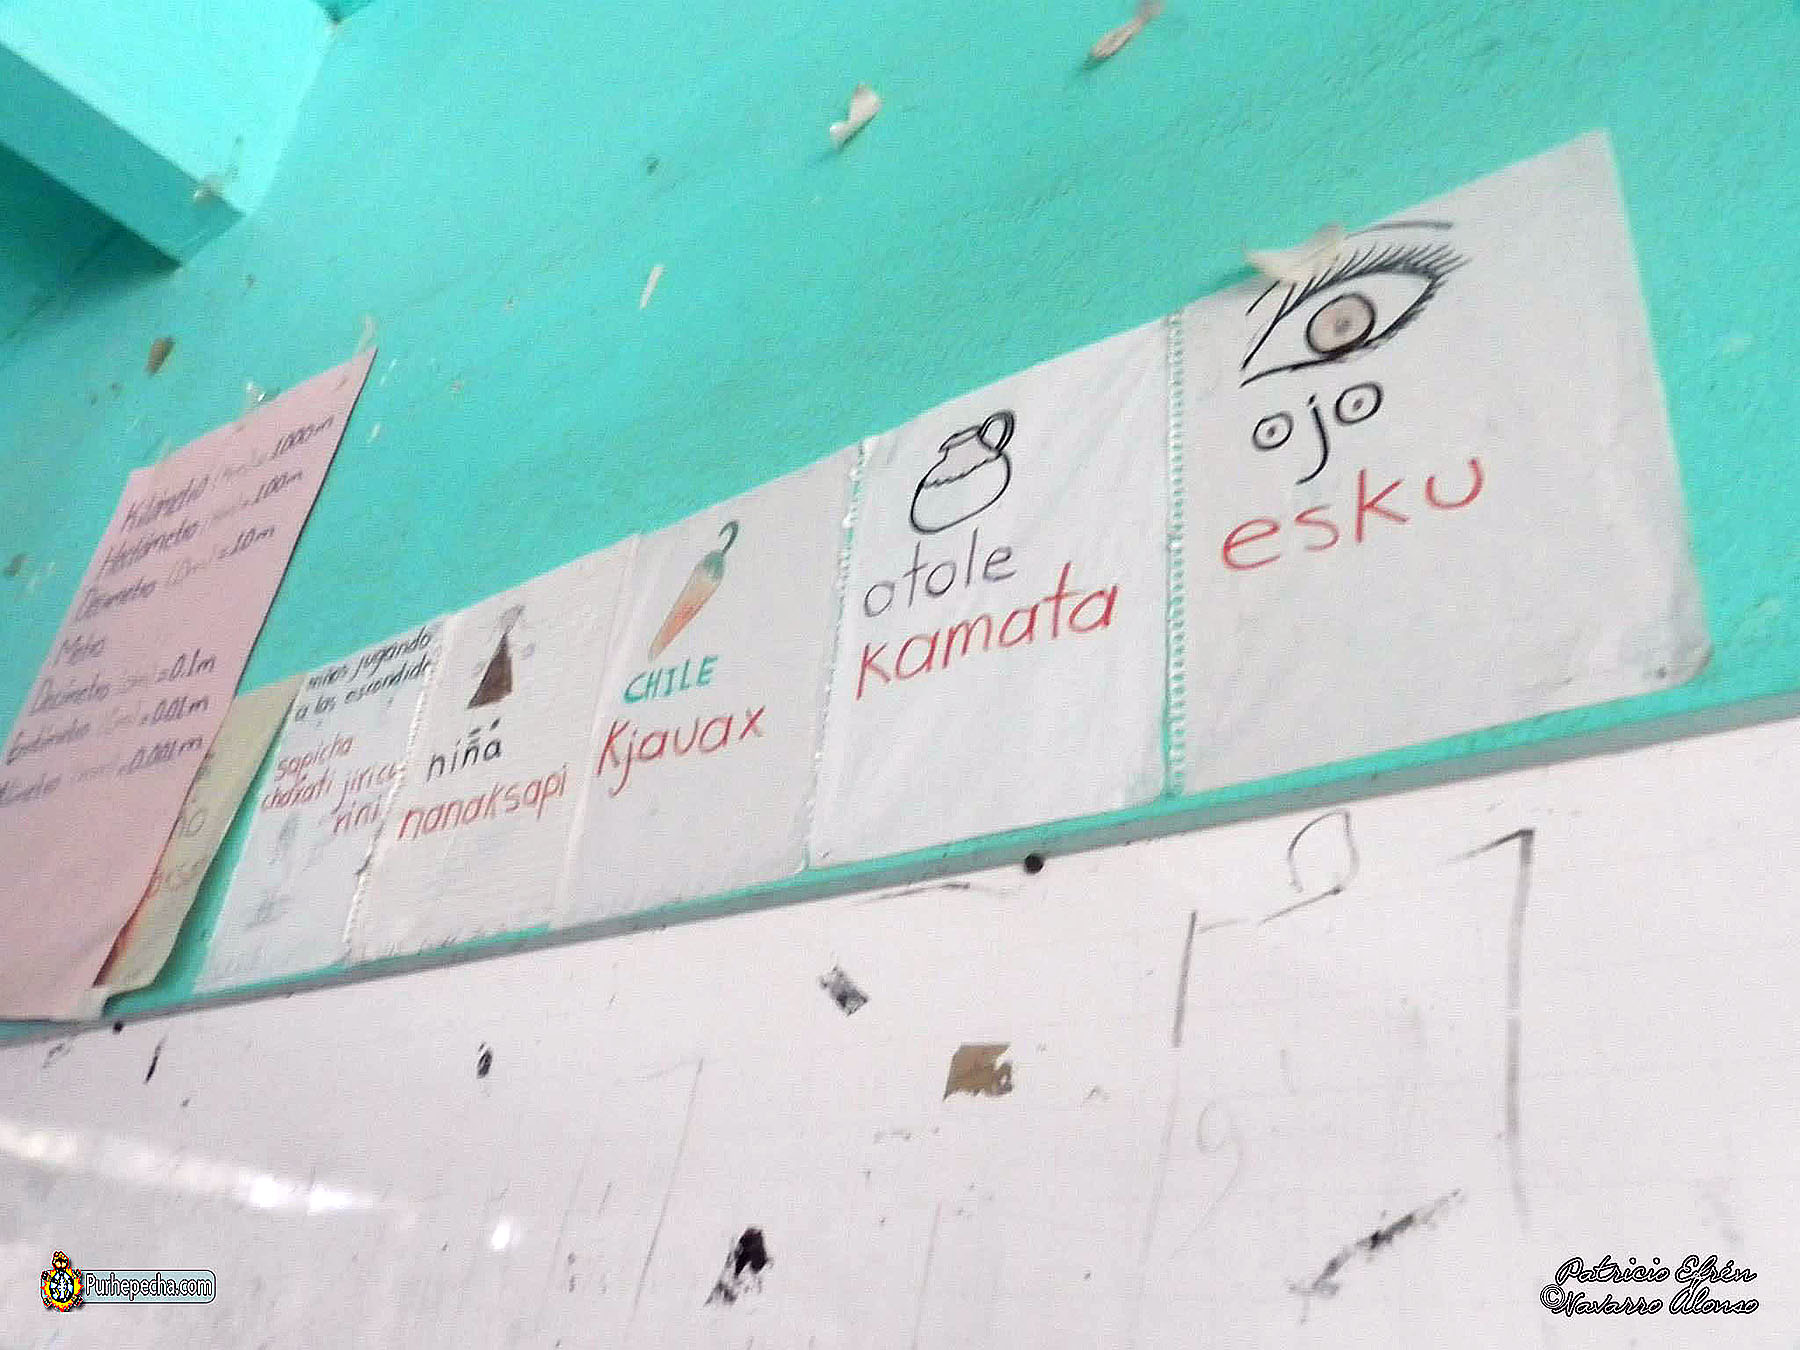 Kilómetro 1000m
Hectómetro = 100m
Decámetro = 10m
Metro
Decímetro = 0.1m
Centímetro = 0.01m
= 0.001m
niños jugando
a las escondid
sapicha
jiricu
rini
niña
nanaksapi
CHILE
Kjauax
atole
kamata
ojo
esku
Purhepecha.com
Patricio Efrén
©Navarro Alonso